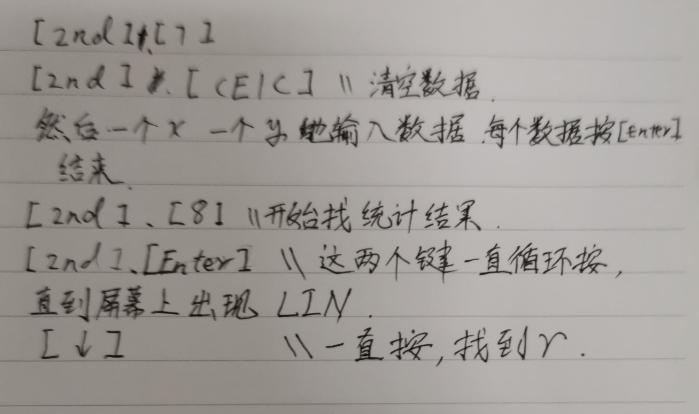 [2nd]、[7]
[2nd]、[CE/C] \\ 清空数据.
然后一个x 一个y地输入数据.每个数据按[Enter]
结束.
[2nd]、[8] \\开始找统计结果.
[2nd]、[Enter] \\ 这两个键一直循环按,
直到屏幕上出现 LIN.
[↓] \\ 一直按,找到r.